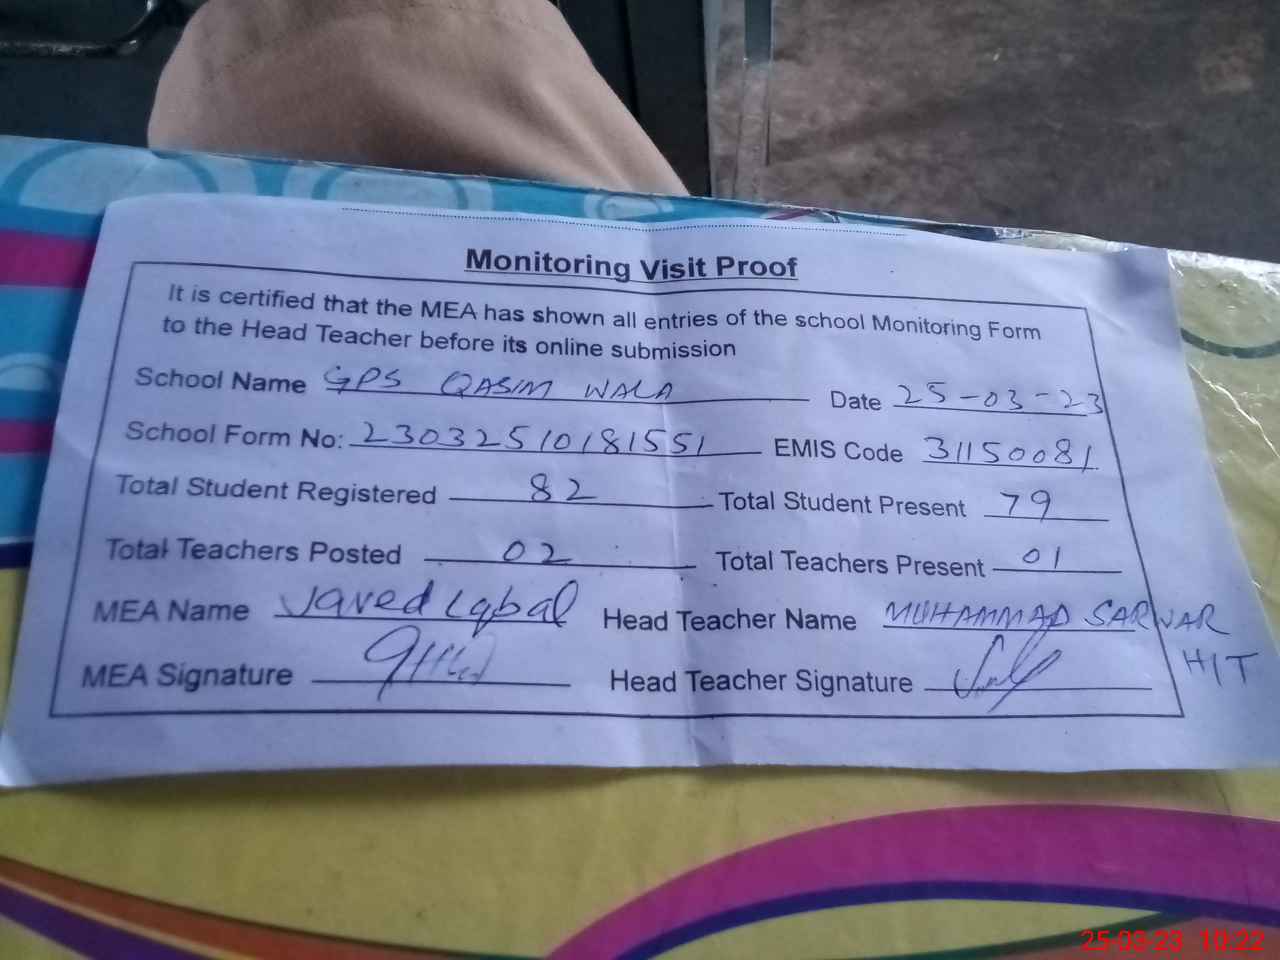 Monitoring Visit Proof
It is certified that the MEA has shown all entries of the school Monitoring Form
to the Head Teacher before its online submission
School Name GPS QASIM WALA Date 25-03-23
School Form No: 23032510181551 EMIS Code 31150081
Total Student Registered 82 Total Student Present 79
Total Teachers Posted 02 Total Teachers Present 01
MEA Name Javed Iqbal Head Teacher Name MUHAMMAD SARWAR
H/T
MEA Signature Head Teacher Signature
25-03-23 10:22